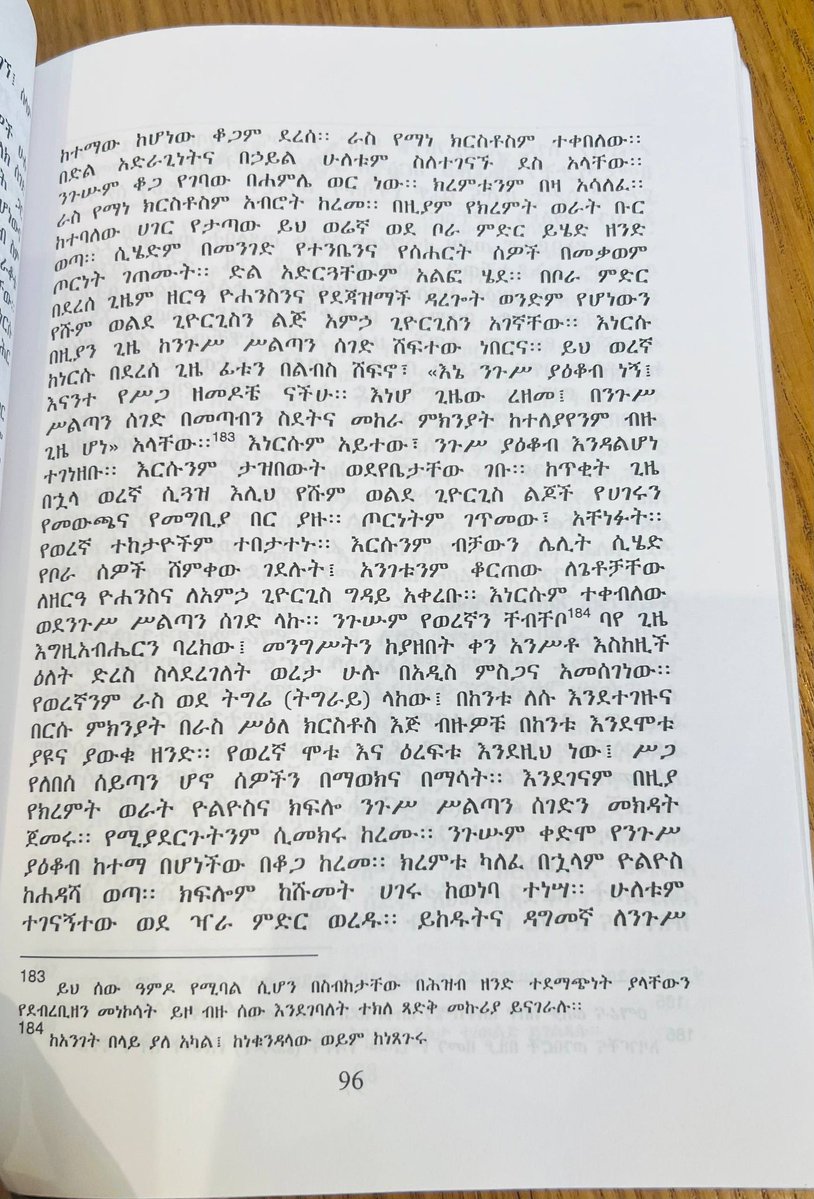 ከተማው ከሆነው ቆጋም ደረሰ። ራስ የማነ ክርስቶስም ተቀበለው።
በድል አድራጊነትና በኃይል ሁለቱም ስለተገናኙ ደስ አላቸው።
ንጉሡም ቆጋ የገባው በሐምሌ ወር ነው። ክረምቱንም በዛ አሳለፈ።
ራስ የማነ ክርስቶስም አብሮት ከረመ። በዚያም የክረምት ወራት ቡር
ከተባለው ሀገር የታጣው ይህ ወሬኛ ወደ ቦራ ምድር ይሄድ ዘንድ
ወጣ። ሲሄድም በመንገድ የተንቤንና የሰሐርት ሰዎች በመቃወም
ጦርነት ገጠሙት። ድል አድርጓቸውም አልፎ ሄደ። በቦራ ምድር
በደረሰ ጊዜም ዘርዓ ዮሐንስንና የደጃዝማች ዳረጐት ወንድም የሆነውን
የሹም ወልደ ጊዮርጊስን ልጅ አምኃ ጊዮርጊስን አገኛቸው። እነርሱ
በዚያን ጊዜ ከንጉሥ ሥልጣን ሰገድ ሸፍተው ነበርና። ይህ ወረኛ
ከነርሱ በደረሰ ጊዜ ፊቱን በልብስ ሸፍኖ፣ «እኔ ንጉሥ ያዕቆብ ነኝ፤
እናንተ የሥጋ ዘመዶቼ ናችሁ። እነሆ ጊዜው ረዘመ፤ በንጉሥ
ሥልጣን ሰገድ በመጣብን ስደትና መከራ ምክንያት ከተለያየንም ብዙ
ጊዜ ሆነ» አላቸው።183 እነርሱም አይተው፣ ንጉሥ ያዕቆብ እንዳልሆነ
ተገነዘቡ። እርሱንም ታዝበውት ወደየቤታቸው ገቡ። ከጥቂት ጊዜ
በኋላ ወረኛ ሲጓዝ እሊህ የሹም ወልደ ጊዮርጊስ ልጆች የሀገሩን
የመውጫና የመግቢያ በር ያዙ። ጦርነትም ገጥመው፣ አቸነፉት።
የወረኛ ተከታዮችም ተበታተኑ። እርሱንም ብቻውን ሌሊት ሲሄድ
የቦራ ሰዎች ሸምቀው ገደሉት፤ አንገቱንም ቆርጠው ለጌቶቻቸው
ለዘርዓ ዮሐንስና ለአምኃ ጊዮርጊስ ግዳይ አቀረቡ። እነርሱም ተቀብለው
ወደንጉሥ ሥልጣን ሰገድ ላኩ። ንጉሡም የወረኛን ቸብቸቦ184 ባየ ጊዜ
እግዚአብሔርን ባረከው፤ መንግሥትን ከያዘበት ቀን አንሥቶ እስከዚች
ዕለት ድረስ ስላደረገለት ወረታ ሁሉ በአዲስ ምስጋና አመሰገነው።
የወረኛንም ራስ ወደ ትግሬ (ትግራይ) ላከው፤ በከንቱ ለሱ እንደተገዙና
በርሱ ምክንያት በራስ ሥዕለ ክርስቶስ እጅ ብዙዎቹ በከንቱ እንደሞቱ
ያዩና ያውቁ ዘንድ። የወረኛ ሞቱ እና ዕረፍቱ እንደዚህ ነው፤ ሥጋ
የለበሰ ሰይጣን ሆኖ ሰዎችን በማወክና በማሳት። እንደገናም በዚያ
የክረምት ወራት ዮልዮስና ክፍሎ ንጉሥ ሥልጣን ሰገድን መክዳት
ጀመሩ። የሚያደርጉትንም ሲመክሩ ከረሙ። ንጉሡም ቀድሞ የንጉሥ
ያዕቆብ ከተማ በሆነችው በቆጋ ከረመ። ክረምቱ ካለፈ በኋላም ዮልዮስ
ከሐዳሻ ወጣ። ክፍሎም ከሹመት ሀገሩ ከወነባ ተነሣ። ሁለቱም
ተገናኝተው ወደ ዣራ ምድር ወረዱ። ይከዱትና ዳግመኛ ለንጉሥ
183 ይህ ሰው ዓምዶ የሚባል ሲሆን በስብከታቸው በሕዝብ ዘንድ ተደማጭነት ያላቸውን
የደብረቢዘን መነኮሳት ይዞ ብዙ ሰው እንደገባለት ተክለ ጻድቅ መኩሪያ ይናገራሉ።
184 ከአንገት በላይ ያለ አካል፤ ከነቁንዳላው ወይም ከነጸጉሩ
96